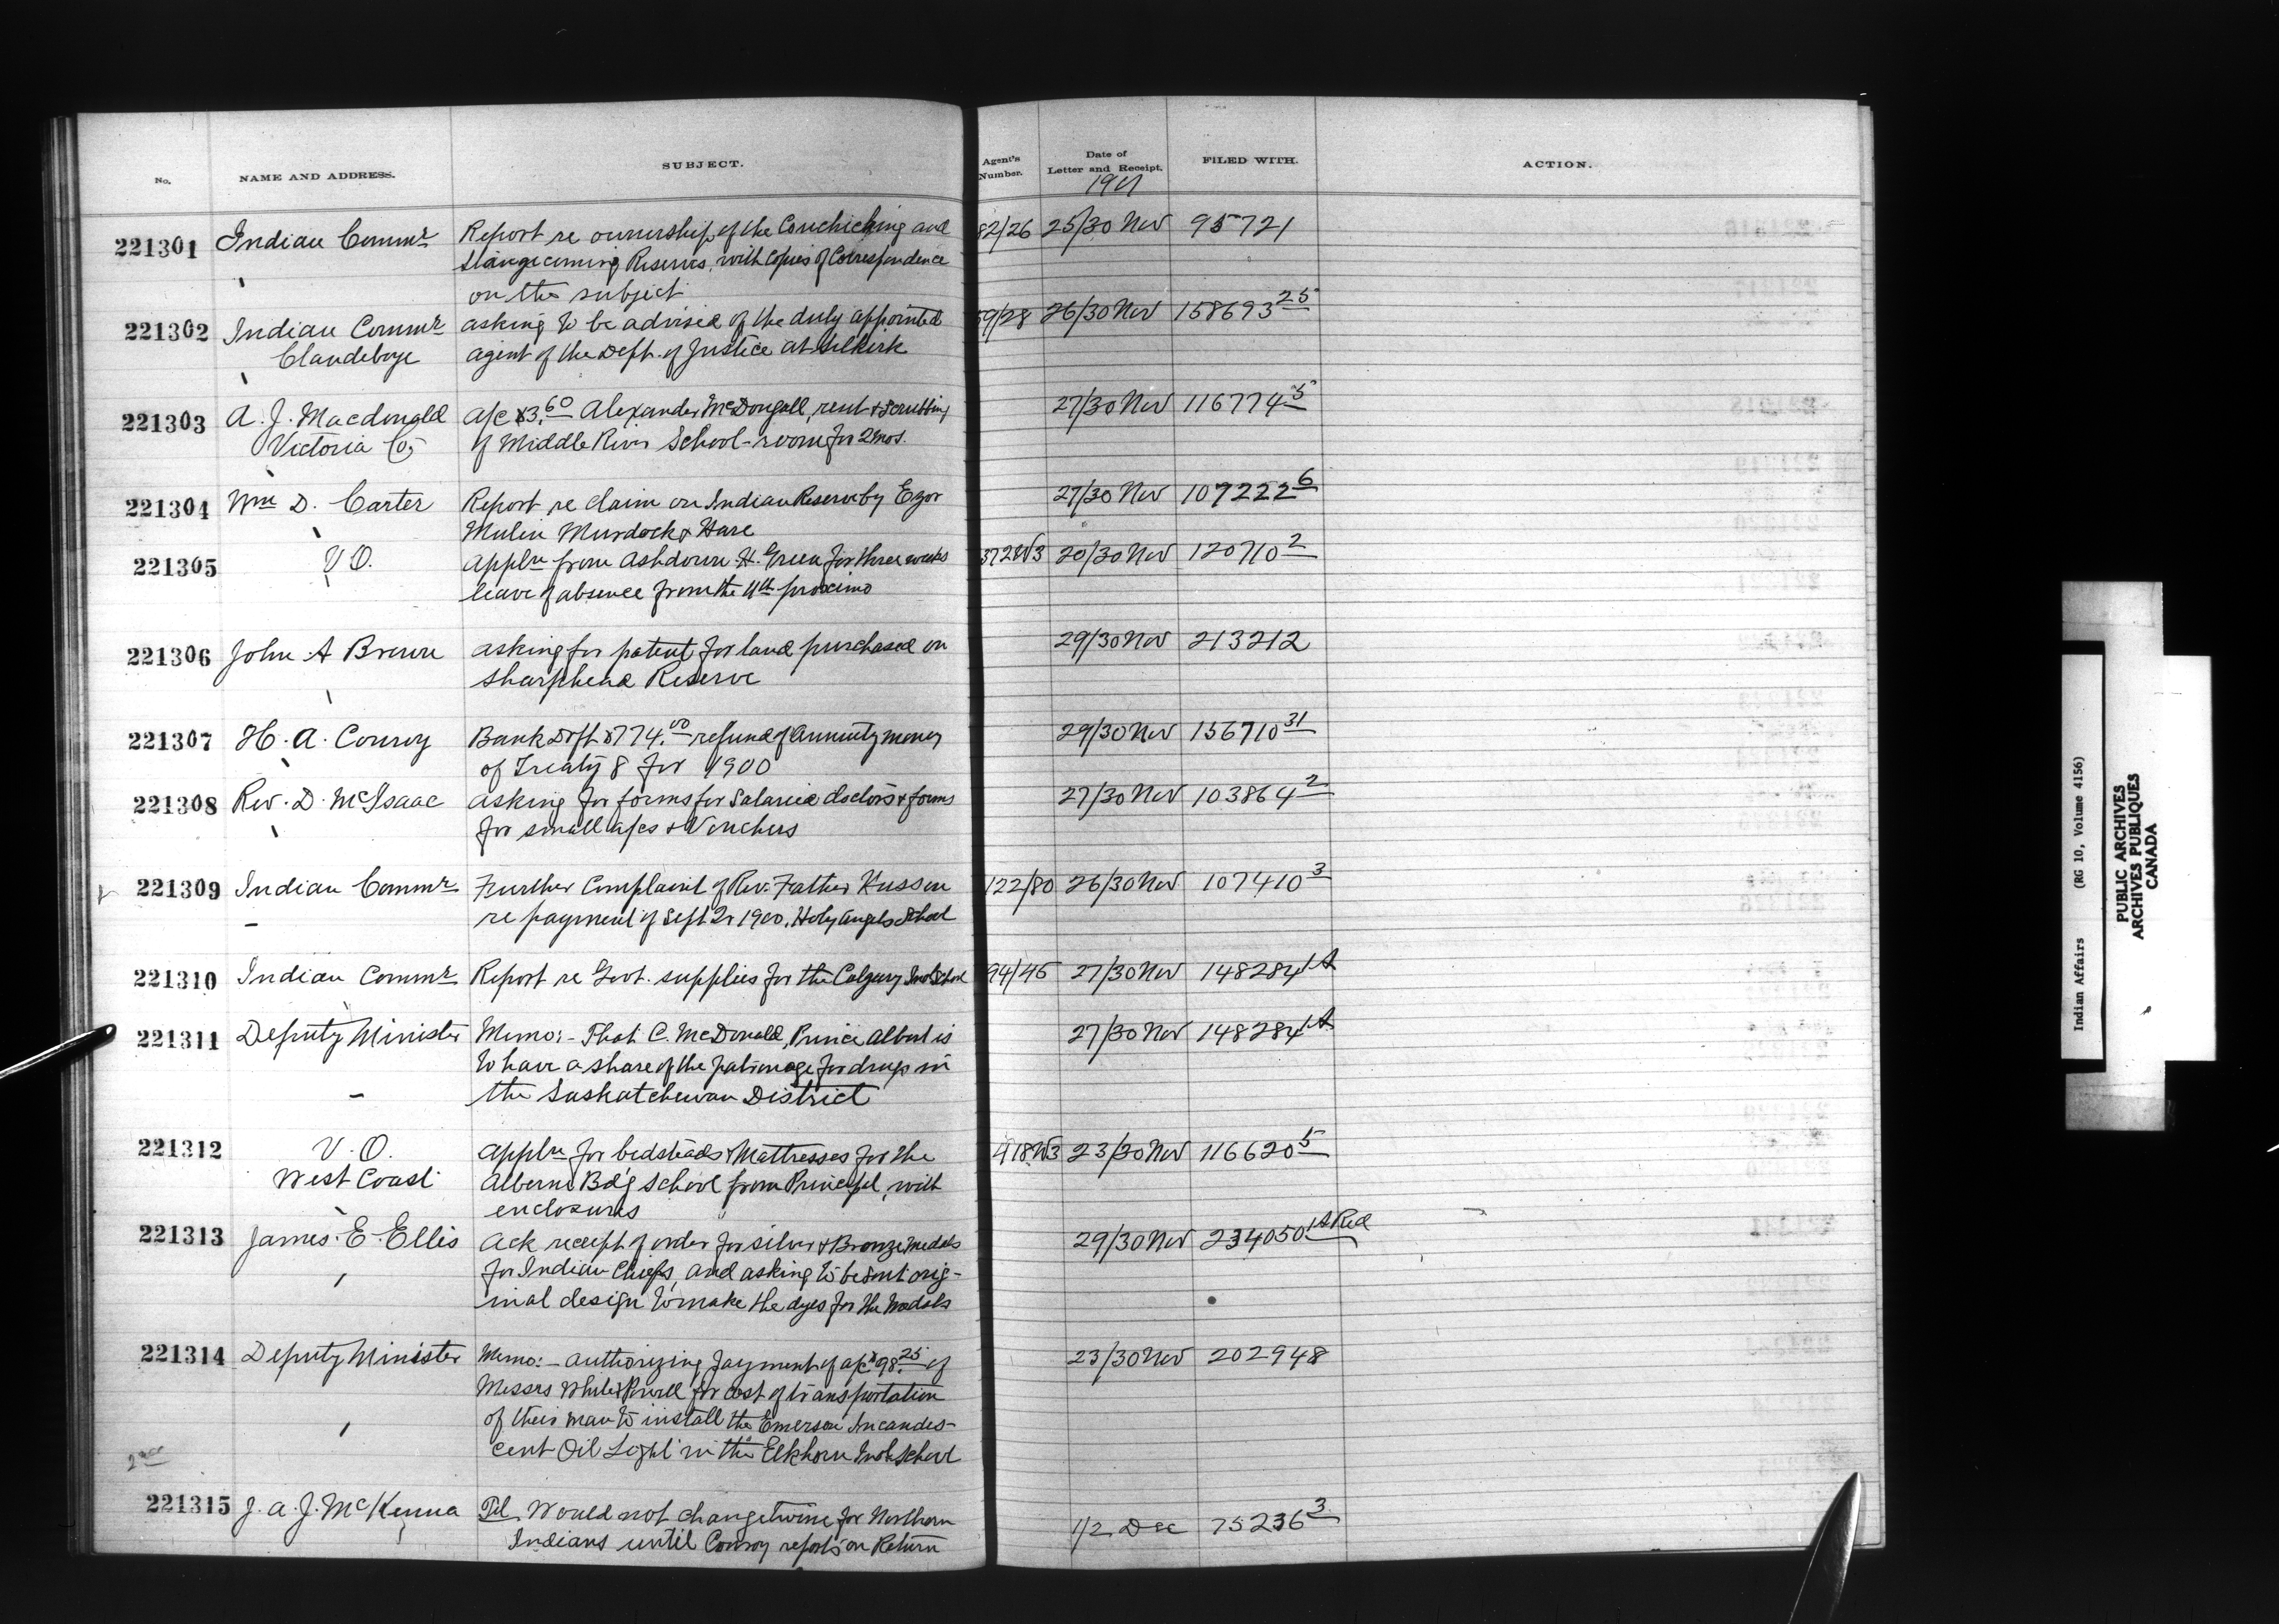 No. NAME AND ADDRESS. SUBJECT. Agent's Number. Date of Letter and Receipt. FILED WITH. ACTION.
1901
221301 Indian Commr Report re ownership of the Couchiching and 82/26 25/30 Nov 95721
Stangecoming Reserves, with Copies of Correspondence
on the subject
221302 Indian Commr asking to be advised of the duly appointed 59/28 26/30 Nov 158693 25
Clandeboye agent of the Dept. of Justice at Selkirk
221303 A. J. Macdonald a/c $3.60 Alexander McDougall, rent & scrubbing 27/30 Nov 116774 5
Victoria Co, of Middle River School-room for 2 mos.
221304 Wm D. Carter Report re claim on Indian Reserve by Egor 27/30 Nov 107222 6
Mulin Murdock & Hare
221305 V.O. Appln from Ashdown H. Green for three weeks 372 W3 20/30 Nov 120710 2
leave of absence from the 4th proximo
221306 John A Brown asking for patent for land purchased on 29/30 Nov 213212
Sharphead Reserve
221307 H. A. Conroy Bank Dft $774.00 refund of Annuity money 29/30 Nov 156710 31
of Treaty 8 for 1900
221308 Rev. D. McIsaac asking for forms for Salaried doctors & forms 27/30 Nov 103864 2
for small a/cs & Vouchers
221309 Indian Commr Further Complaint of Rev. Father Husson 122/80 26/30 Nov 107410 3
re payment of Sept Qr 1900, Holy Angels School
221310 Indian Commr Report re Govt. supplies for the Calgary Indl School 94/45 27/30 Nov 148284 1A
221311 Deputy Minister Memo:- That C. McDonald, Prince Albert is 27/30 Nov 148284 1A
to have a share of the patronage for drugs in
the Saskatchewan District
221312 V.O. appln for bedsteads & Mattresses for the 418 W3 23/30 Nov 116620 5
West Coast Alberni Bdg School from Principal, with
enclosures
221313 James. E. Ellis Ack receipt of order for silver & Bronze medals 29/30 Nov 234050 1A Red
for Indian Chiefs, and asking to be sent orig-
inal design to make the dyes for the medals
221314 Deputy Minister Memo:- authorizing payment of a/c $98.25 of 23/30 Nov 202948
Messrs White & Powell for cost of transportation
of their man to install the Emerson Incandes-
cent Oil Light in the Elkhorn Indl School
2nd
221315 J. A. J. McKenna Tel Would not change twine for Northern 1/2 Dec 75236 3
Indians until Conroy reports on Return
Indian Affairs (RG 10, Volume 4156)
PUBLIC ARCHIVES
ARCHIVES PUBLIQUES
CANADA